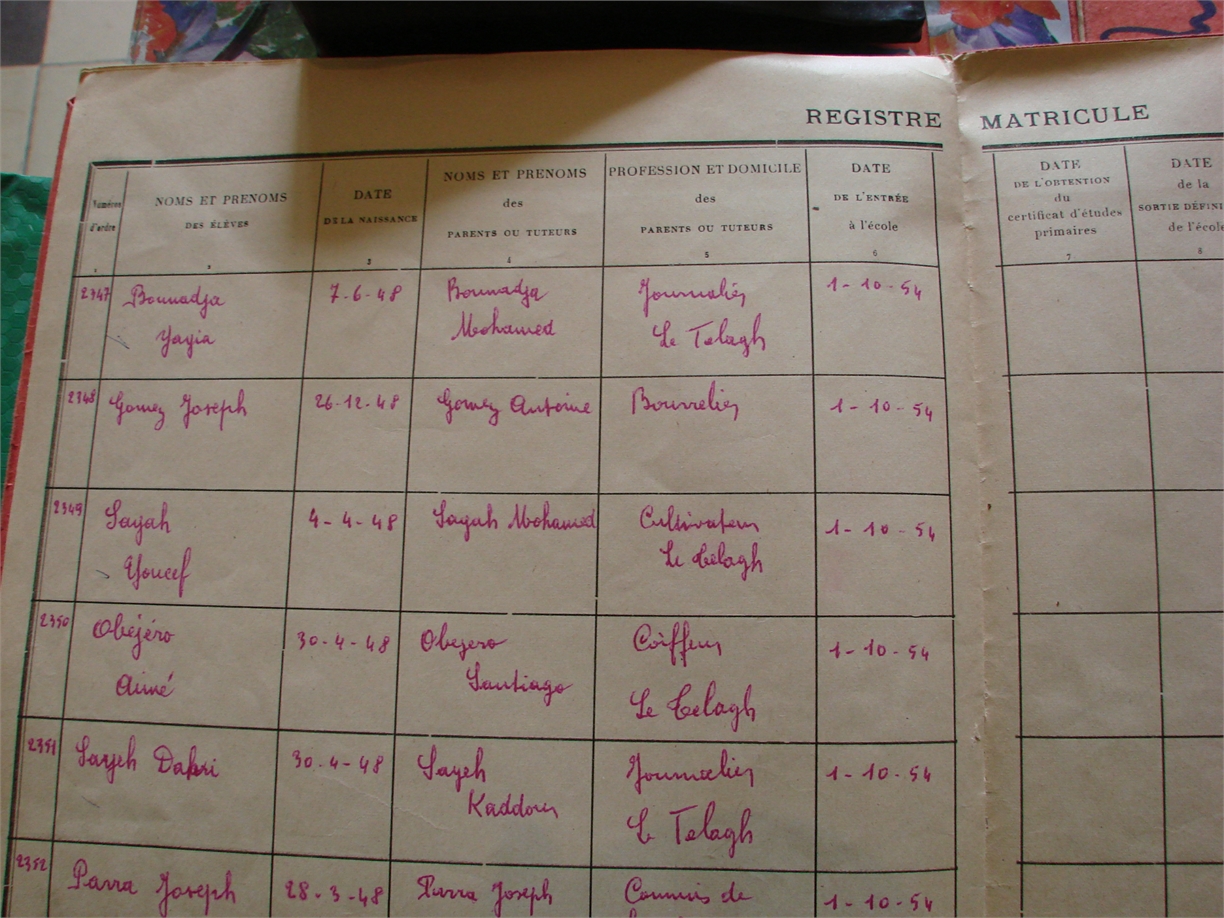 REGISTRE MATRICULE
Numéros d'ordre
NOMS ET PRENOMS
DES ÉLÈVES
DATE
DE LA NAISSANCE
NOMS ET PRENOMS
des
PARENTS OU TUTEURS
PROFESSION ET DOMICILE
des
PARENTS OU TUTEURS
DATE
DE L'ENTRÉE
à l'école
DATE
DE L'OBTENTION
du
certificat d'études
primaires
DATE
de la
SORTIE DÉFINI
de l'école
1 2 3 4 5 6 7 8
2347 Bounadja 7-6-48 Bounadja Journalier 1-10-54
Yayia Mohamed Le Telagh
2348 Gomez Joseph 26-12-48 Gomez Antoine Bourrelier 1-10-54
2349 Sayah 4-4-48 Sayah Mohamed Cultivateur 1-10-54
Youcef Le Telagh
2350 Obéjéro 30-4-48 Obejero Coiffeur 1-10-54
Aimé Santiago Le Telagh
2351 Sayeh Dahri 30-4-48 Sayeh Journalier 1-10-54
Kaddour Le Telagh
2352 Parra Joseph 28-3-48 Parra Joseph Commis de 1-10-54